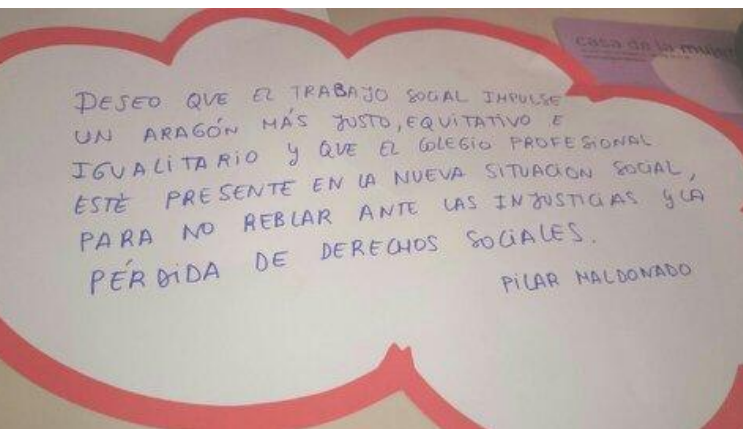 casa de la mujer
DESEO QUE EL TRABAJO SOCIAL IMPULSE
UN ARAGÓN MÁS JUSTO, EQUITATIVO E
IGUALITARIO Y QUE EL COLEGIO PROFESIONAL
ESTÉ PRESENTE EN LA NUEVA SITUACION SOCIAL,
PARA NO REBLAR ANTE LAS INJUSTICIAS Y LA
PÉRDIDA DE DERECHOS SOCIALES.
PILAR MALDONADO